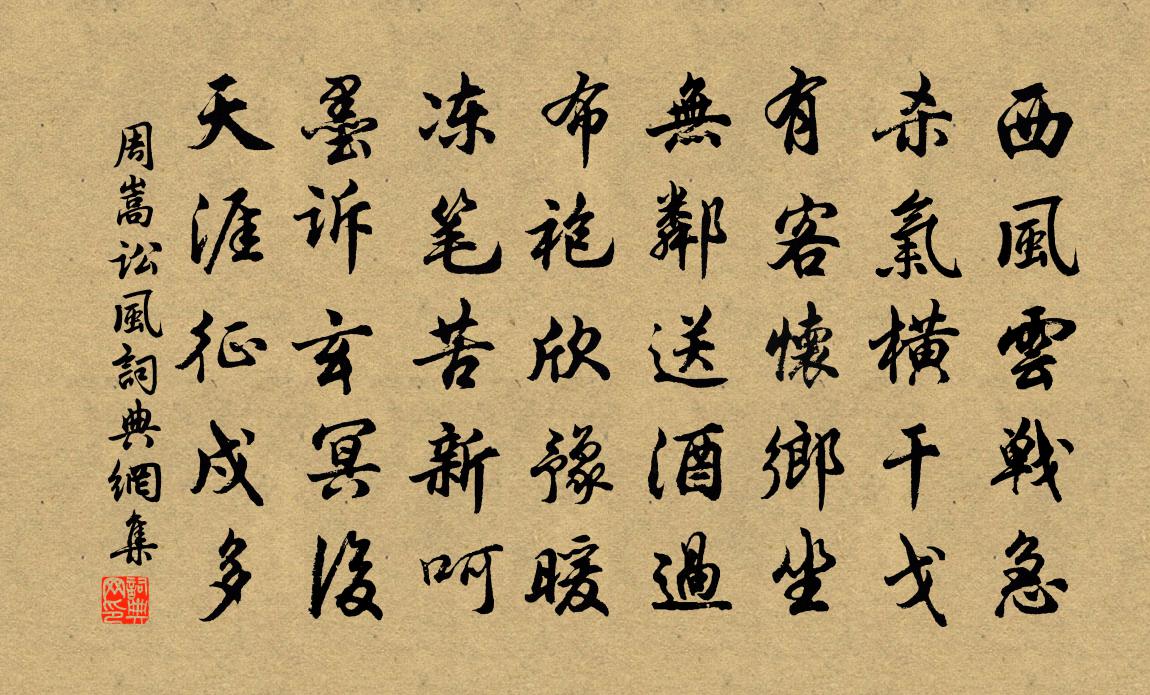 西風雲戦急
杀氣橫干戈
有客懷鄉坐
無鄰送酒過
布袍欣豫暖
冻笔苦新呵
墨訴玄冥後
天涯征戍多
周嵩訟風詞典網集
詞典网印